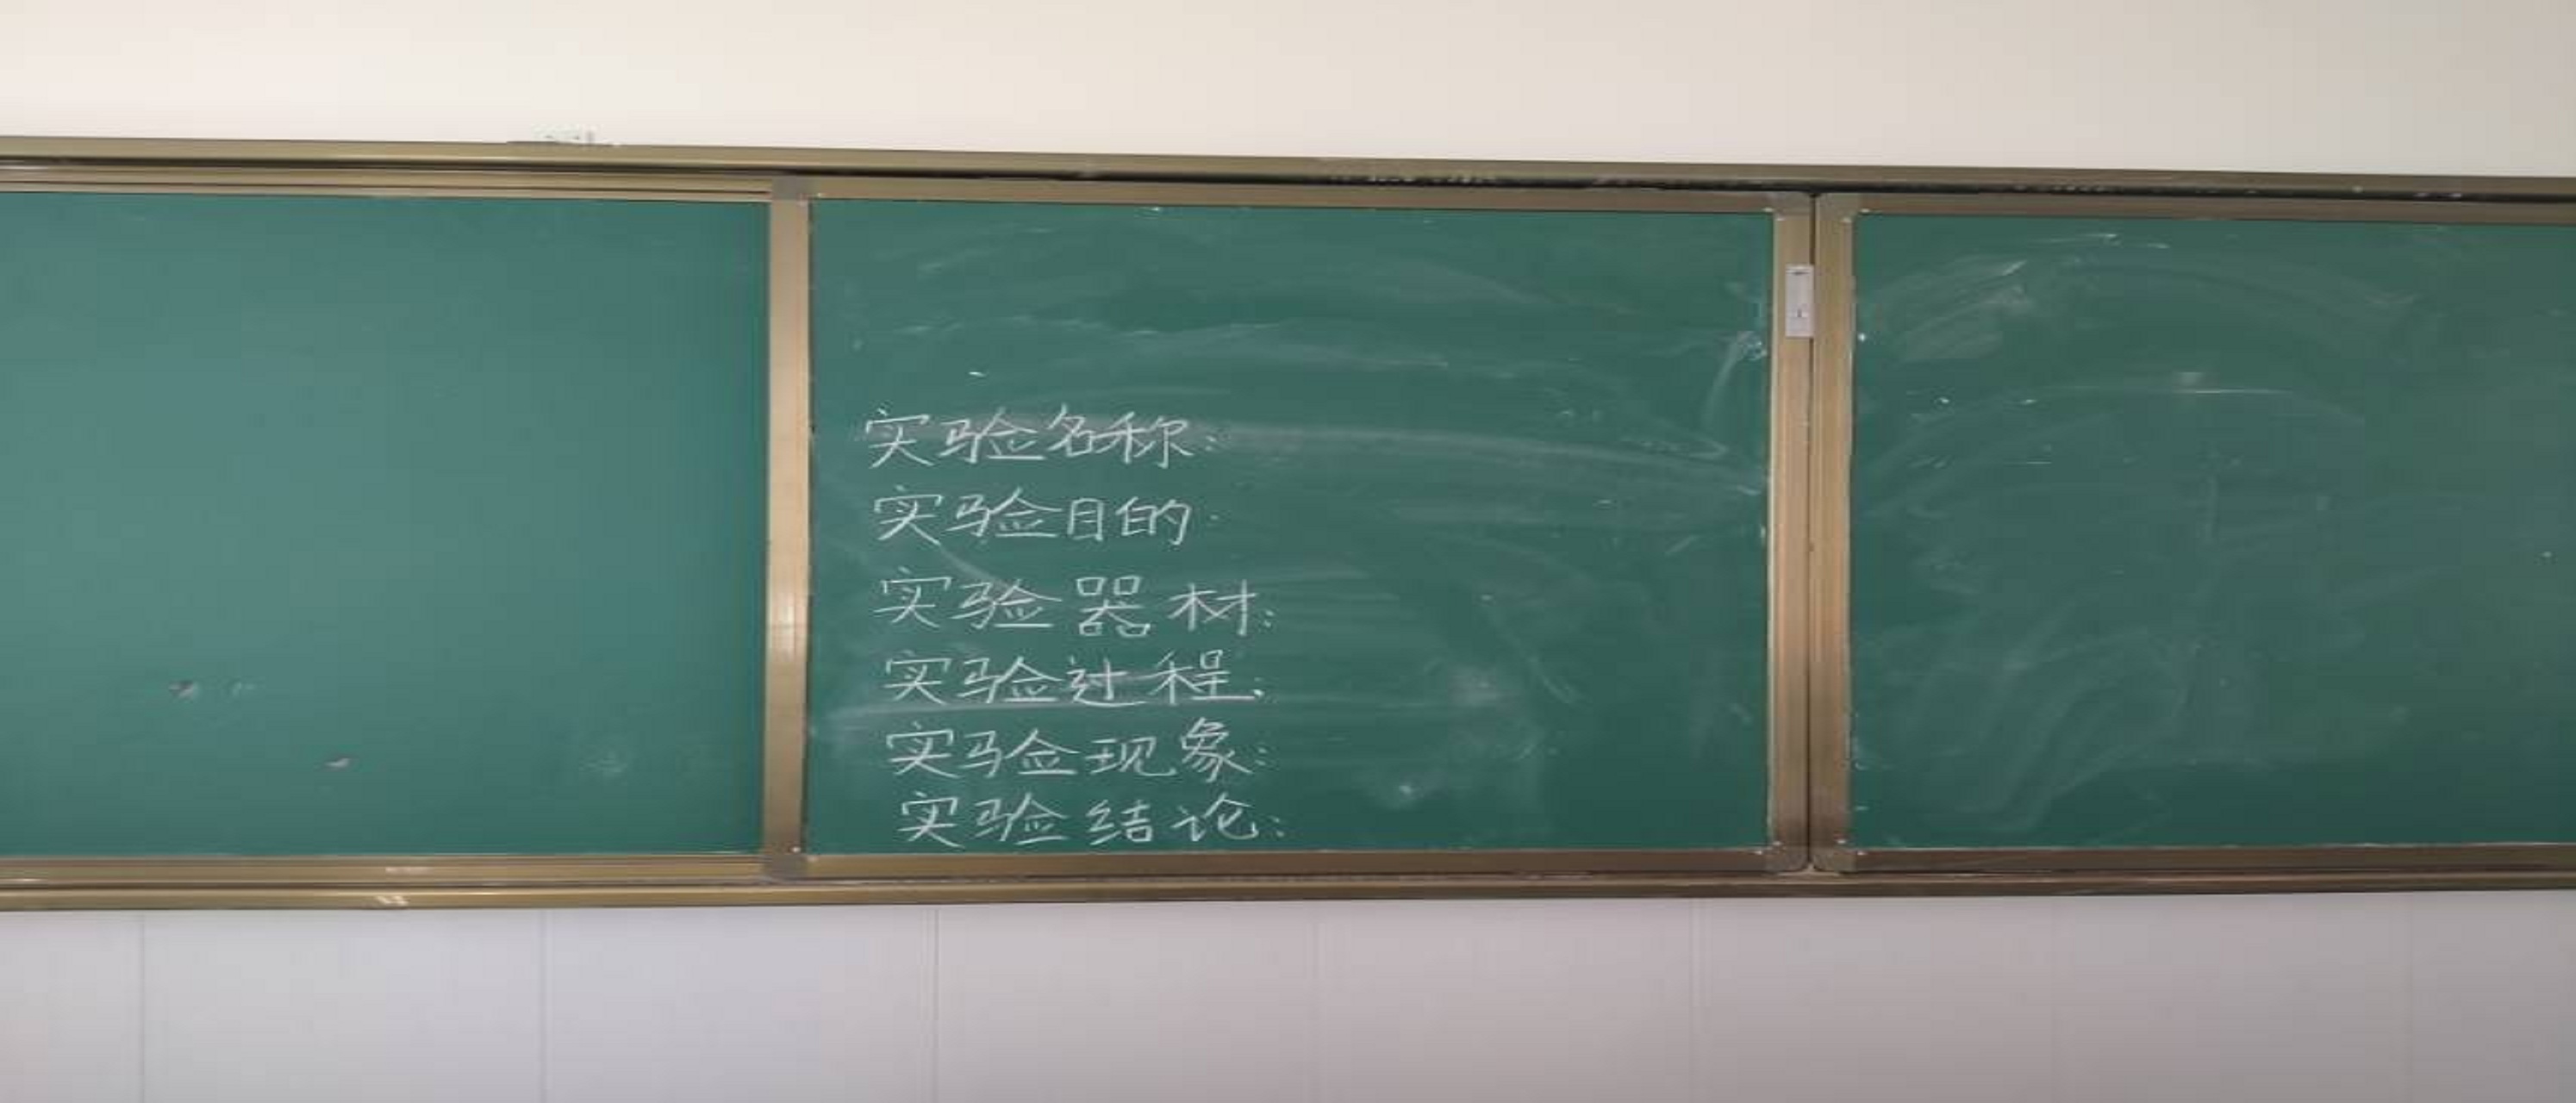 实验名称:
实验目的:
实验器材:
实验过程:
实验现象:
实验结论: